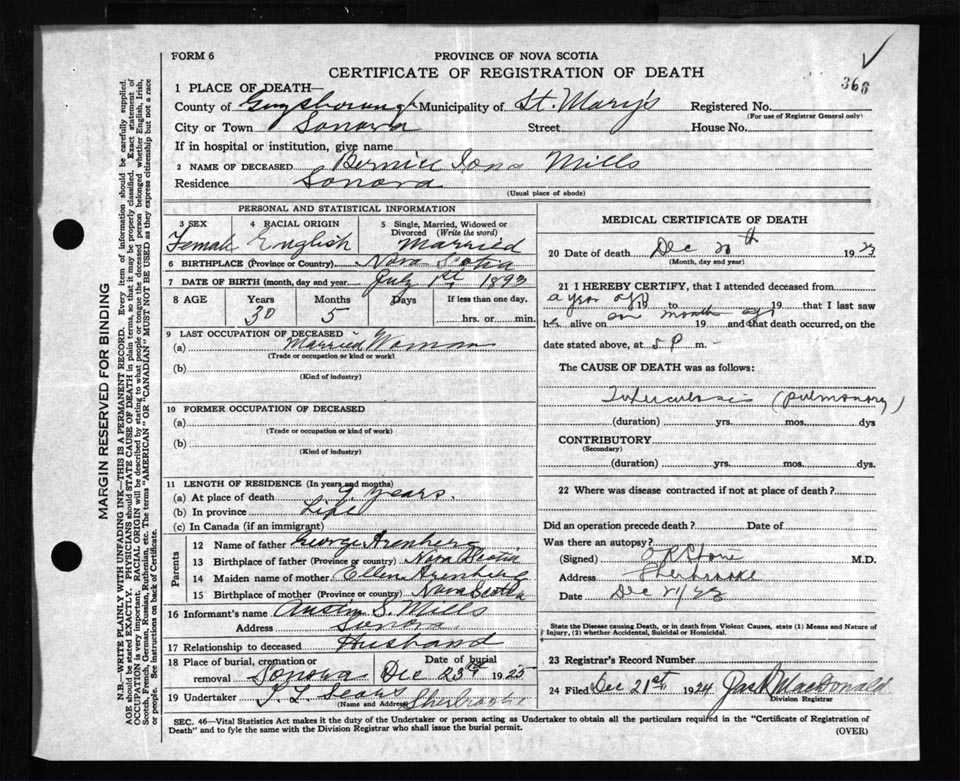 FORM 6
PROVINCE OF NOVA SCOTIA
CERTIFICATE OF REGISTRATION OF DEATH
368
1 PLACE OF DEATH—
County of Guysborough Municipality of St. Mary's Registered No.
(For use of Registrar General only)
City or Town Sonora Street House No.
If in hospital or institution, give name
2 NAME OF DECEASED Bernice Iona Mills
Residence Sonora
(Usual place of abode)
PERSONAL AND STATISTICAL INFORMATION
3 SEX 4 RACIAL ORIGIN 5 Single, Married, Widowed or Divorced (Write the word)
Female English Married
6 BIRTHPLACE (Province or Country) Nova Scotia
7 DATE OF BIRTH (month, day and year) July 1st 1893
8 AGE Years Months Days If less than one day,
30 5 hrs. or min.
9 LAST OCCUPATION OF DECEASED
(a) Married Woman
(Trade or occupation or kind or work)
(b)
(Kind of industry)
10 FORMER OCCUPATION OF DECEASED
(a)
(Trade or occupation or kind of work)
(b)
(Kind of industry)
11 LENGTH OF RESIDENCE (In years and months)
(a) At place of death 9 years.
(b) In province Life
(c) In Canada (if an immigrant)
Parents
12 Name of father George Arenberg
13 Birthplace of father (Province or country) Nova Scotia
14 Maiden name of mother Ellen Arenberg
15 Birthplace of mother (Province or country) Nova Scotia
16 Informant's name Austin S. Mills
Address Sonora
17 Relationship to deceased Husband
18 Place of burial, cremation or removal Sonora Date of burial Dec 23rd 1923
19 Undertaker Sears Sherbrooke
(Name and Address)
MEDICAL CERTIFICATE OF DEATH
20 Date of death Dec 20th 1923
(Month, day and year)
21 I HEREBY CERTIFY, that I attended deceased from
a year ago 19 to 19 that I last saw
her alive on one month ago 19 and that death occurred, on the
date stated above, at 5 P m.
The CAUSE OF DEATH was as follows:
Tuberculosis (pulmonary)
(duration) yrs. mos. dys
CONTRIBUTORY
(Secondary)
(duration) yrs. mos. dys.
22 Where was disease contracted if not at place of death?
Did an operation precede death? Date of
Was there an autopsy?
(Signed) M.D.
Address Sherbrooke
Date Dec 21/23
State the Disease causing Death, or in death from Violent Causes, state (1) Means and Nature of
Injury, (2) whether Accidental, Suicidal or Homicidal.
23 Registrar's Record Number
24 Filed Dec 21st 1924 MacDonald
Division Registrar
SEC. 46—Vital Statistics Act makes it the duty of the Undertaker or person acting as Undertaker to obtain all the particulars required in the "Certificate of Registration of
Death" and to fyle the same with the Division Registrar who shall issue the burial permit.
(OVER)
MARGIN RESERVED FOR BINDING
N.B.—WRITE PLAINLY WITH UNFADING INK—THIS IS A PERMANENT RECORD. Every item of information should be carefully supplied.
AGE should be stated EXACTLY. PHYSICIANS should STATE CAUSE OF DEATH in plain terms, so that it may be properly classified. Exact statement of
OCCUPATION is very important. RACIAL ORIGIN will be described by stating to what people or tongue the deceased person belonged whether English, Irish,
Scotch, French, German, Russian, Ruthenian, etc. The terms "AMERICAN" OR "CANADIAN" MUST NOT BE USED as they express citizenship but not a race
or people. See instructions on back of Certificate.